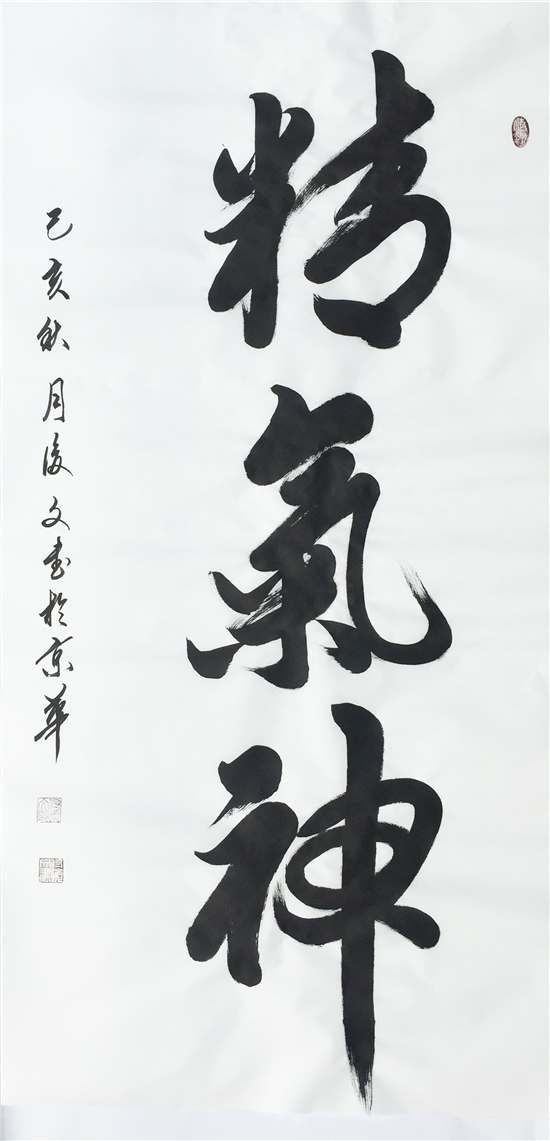 精氣神
己亥秋月俊文书於京華